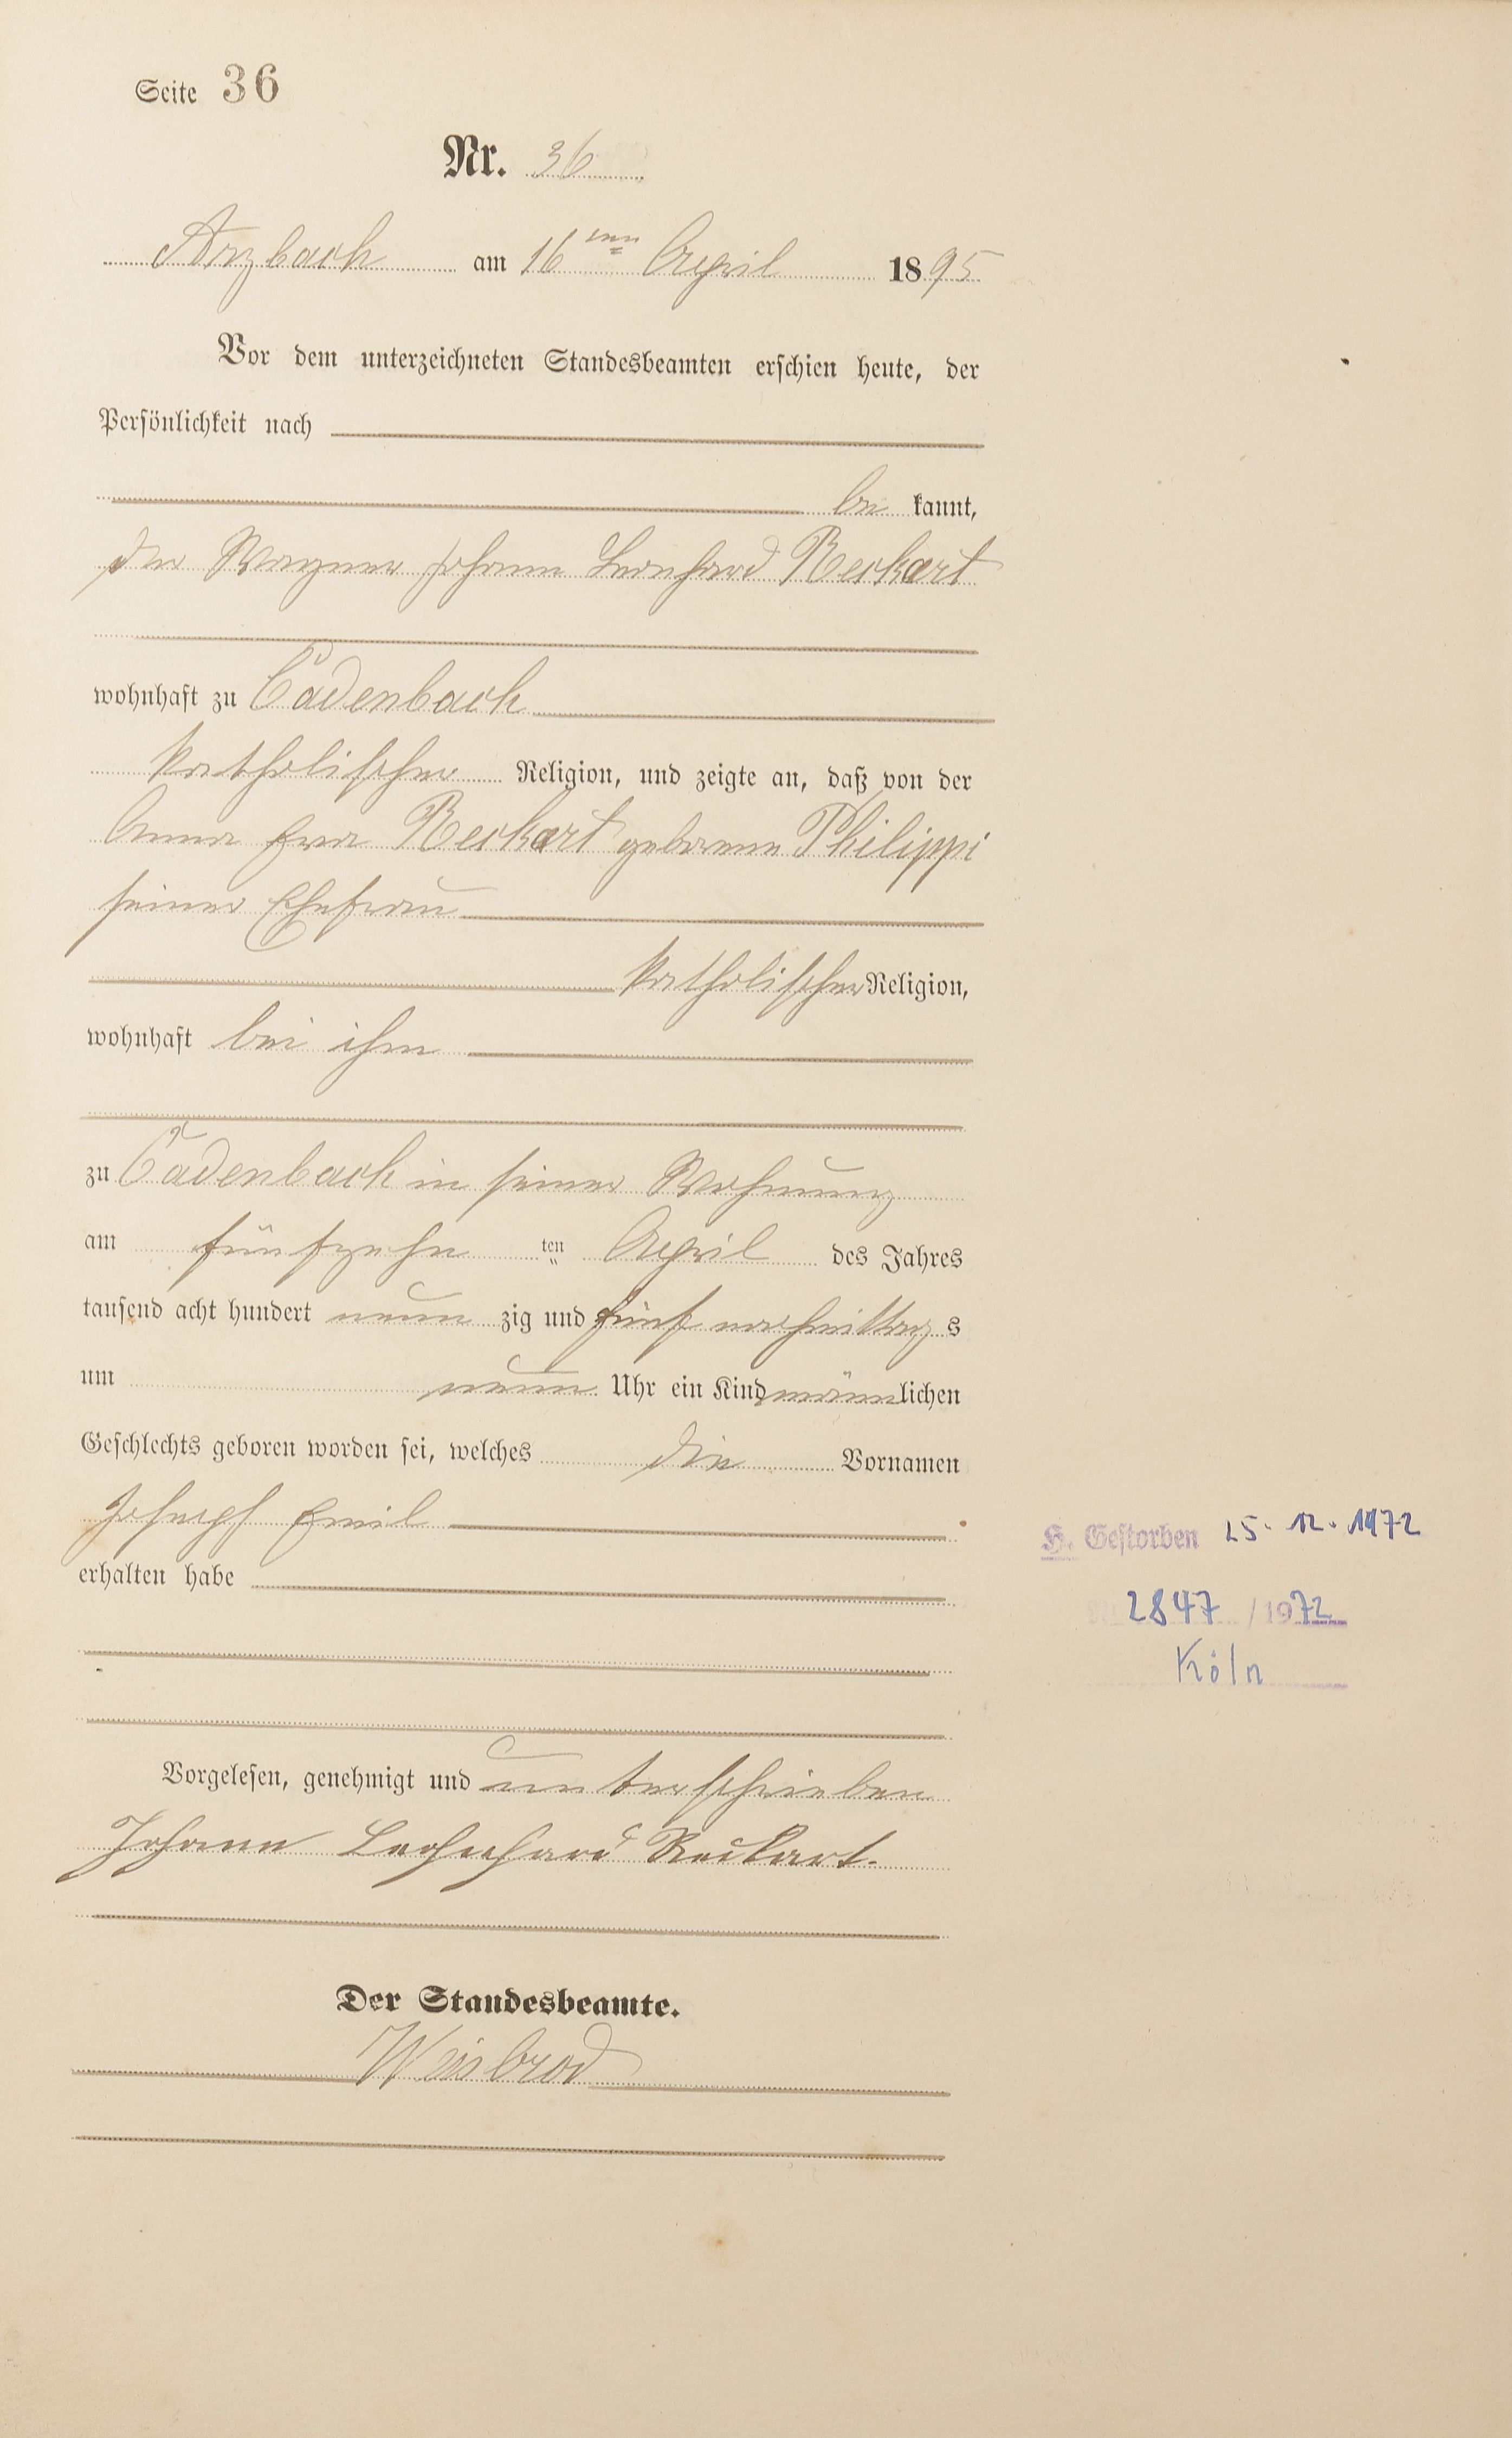 Seite 36
Nr. 36
Arzbach am 16ten April 1895
Vor dem unterzeichneten Standesbeamten erschien heute, der
Persönlichkeit nach
be kannt,
der Wagner Johann Leonhard Reckart
wohnhaft zu Cadenbach
katholischer Religion, und zeigte an, daß von der
Anna Eva Reckart geborene Philippi
seiner Ehefrau
katholischer Religion,
wohnhaft bei ihm
zu Cadenbach in seiner Wohnung
am fünfzehn ten April des Jahres
tausend acht hundert neun zig und fünf nachmittag s
um neun Uhr ein Kind männlichen
Geschlechts geboren worden sei, welches die Vornamen
Joseph Emil
erhalten habe
H. Gestorben 25. 12. 1972
2847 /1972
Köln
Vorgelesen, genehmigt und unterschrieben
Johann Leohnhard Reckart.
Der Standesbeamte.
Weisbrod